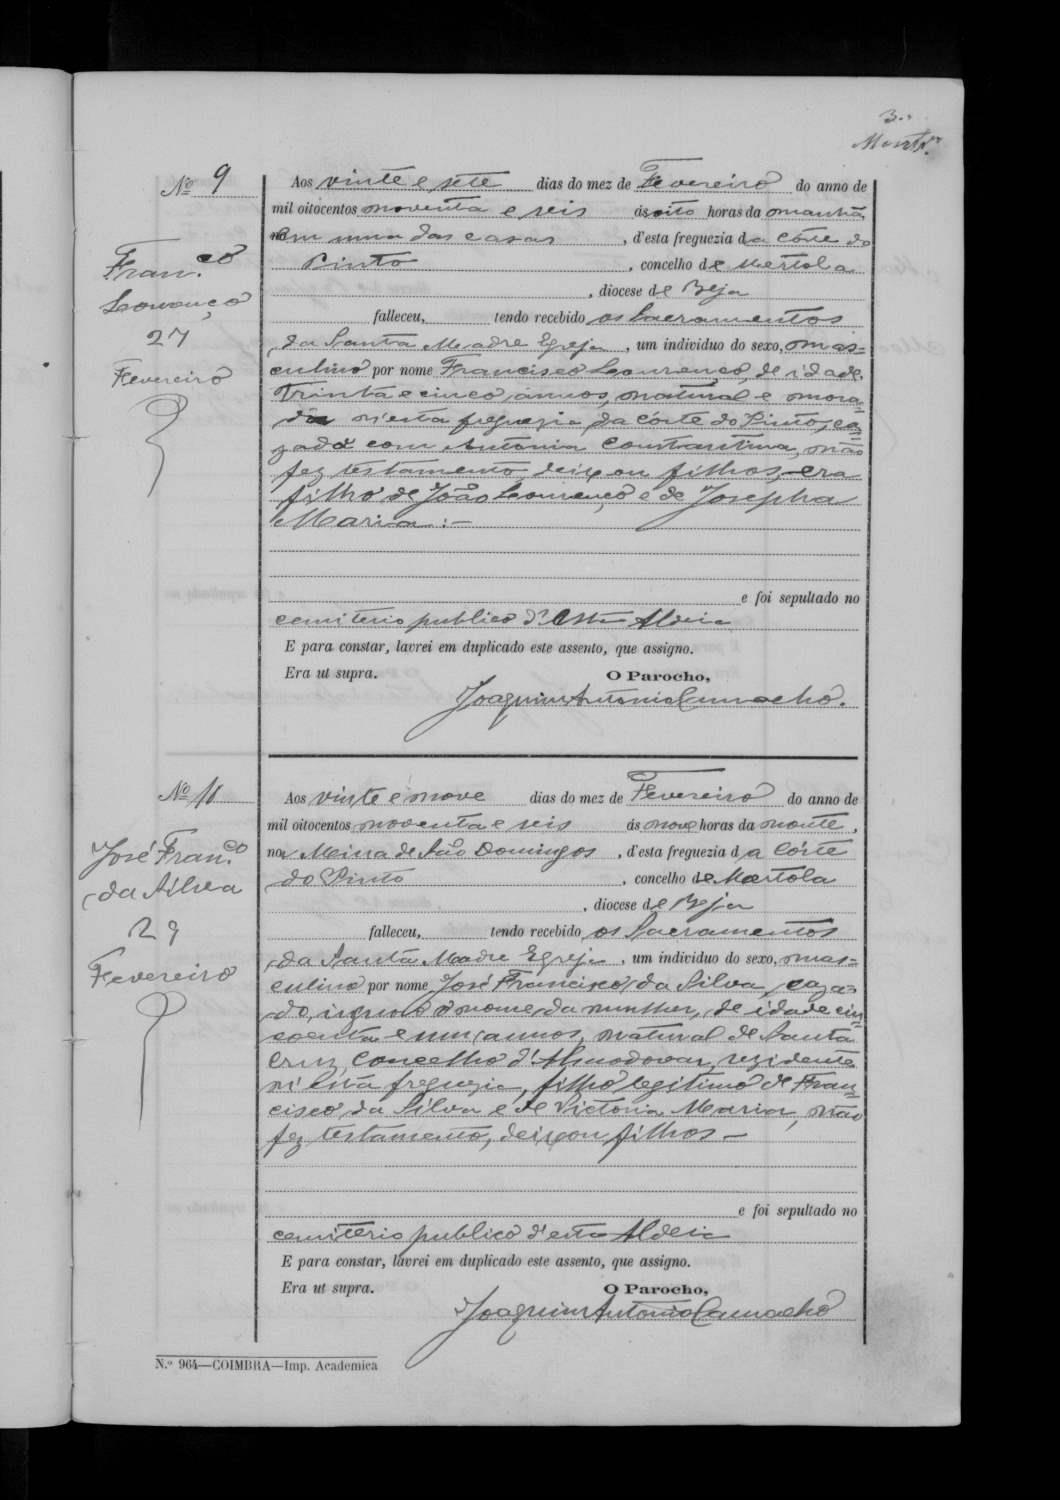 3..
Nº 9
Fran.co
Lourenço
27
Fevereiro
Aos vinte e sete dias do mez de Fevereiro do anno de
mil oitocentos noventa e seis ás oito horas da manhã,
em uma das casas, d'esta freguezia da Côrte do
Pinto, concelho de Mertola
, diocese de Beja
falleceu, tendo recebido os Sacramentos
da Santa Madre Egreja, um individuo do sexo, mas=
culino por nome Francisco Lourenço, de idade
trinta e cinco annos, natural e mora=
dor n'esta freguezia da Côrte do Pinto, ca=
zado com Antonia Constantina, não
fez testamento, deixou filhos, era
filho de João Lourenço e de Josepha
Maria:-
e foi sepultado no
cemiterio publico d'esta Aldeia
E para constar, lavrei em duplicado este assento, que assigno.
Era ut supra. O Parocho,
Joaquim Antonio Camacho.
Nº 10
José Fran.co
da Silva
29
Fevereiro
Aos vinte e nove dias do mez de Fevereiro do anno de
mil oitocentos noventa e seis ás nove horas da noute,
na Meina de São Domingos, d'esta freguezia da Côrte
do Pinto, concelho de Mertola
, diocese de Beja
falleceu, tendo recebido os Sacramentos
da Santa Madre Egreja, um individuo do sexo, mas=
culino por nome José Francisco da Silva, caza=
do, ignoro o nome da mulher, de idade cin=
coenta e um annos, natural de Santa
Cruz, Concelho d'Almodovar, rezidente
n'esta freguezia, filho legitimo de Fran=
cisco da Silva e de Victoria Maria, não
fez testamento, deixou filhos-
e foi sepultado no
cemiterio publico d'esta Aldeia
E para constar, lavrei em duplicado este assento, que assigno.
Era ut supra. O Parocho,
Joaquim Antonio Camacho
N.º 964—COIMBRA—Imp. Academica